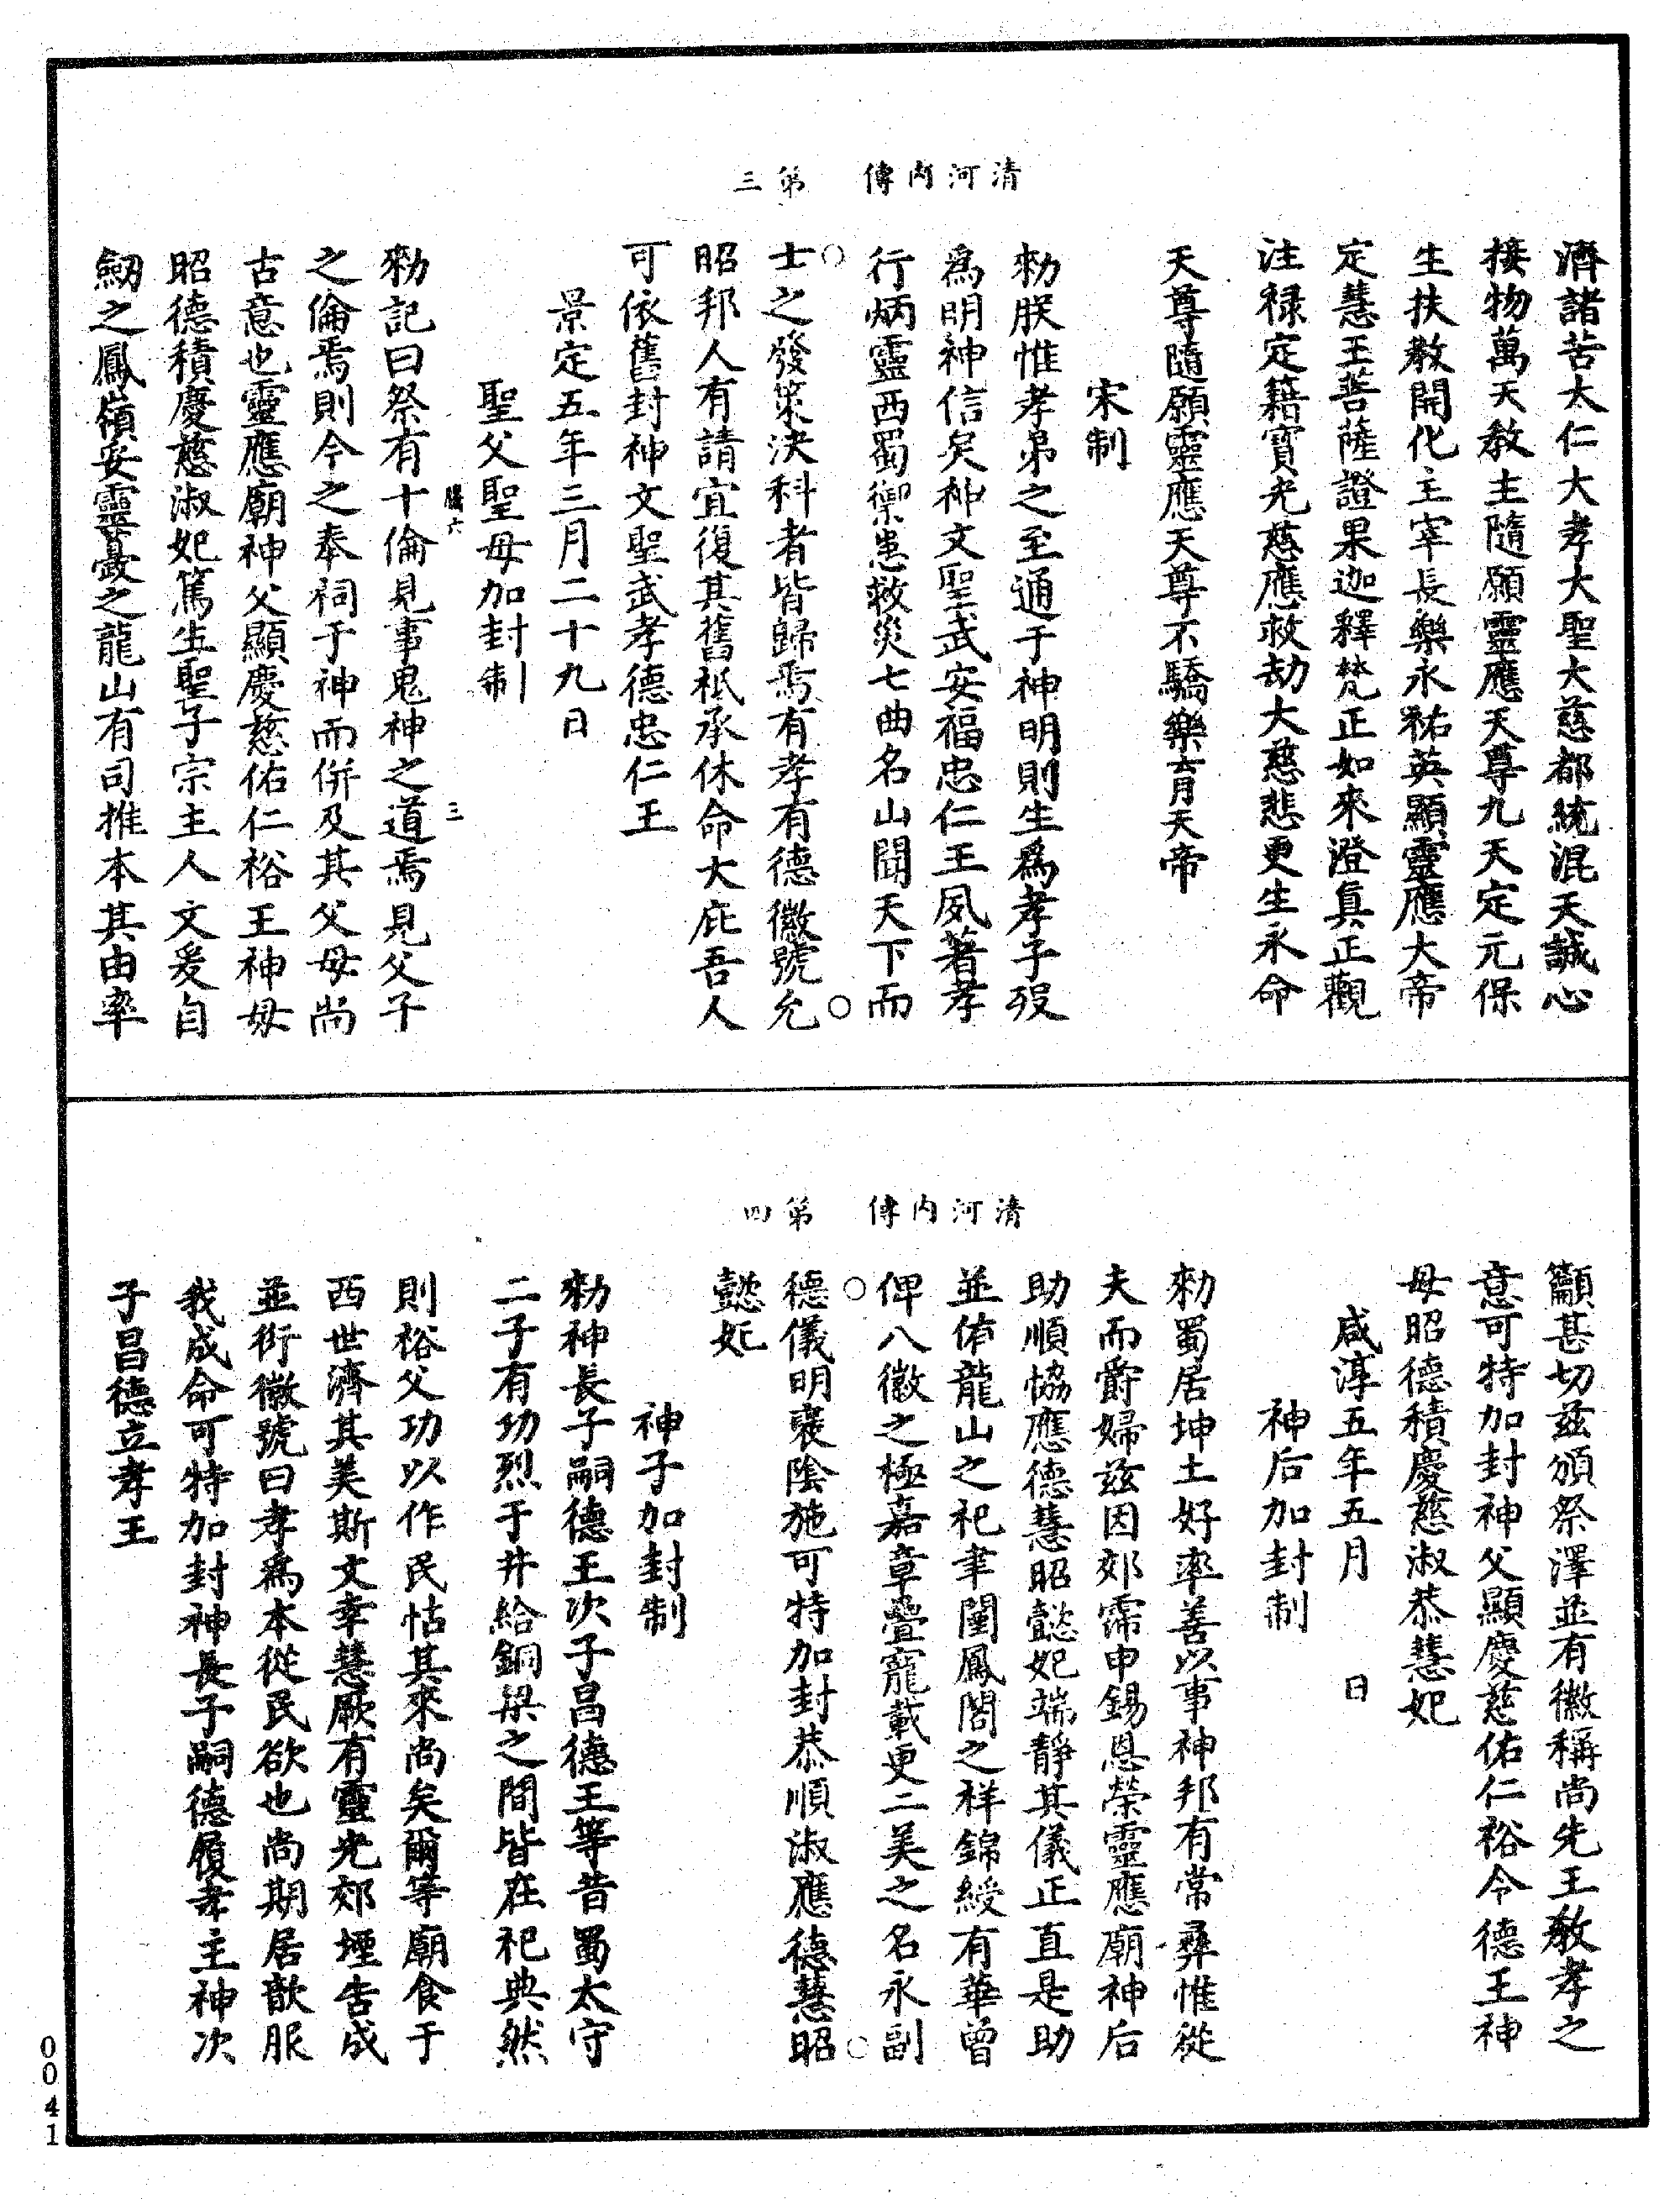 清河內傳　第三
濟諸苦大仁大孝大聖大慈都統混天誠心
接物萬天教主隨願靈應天尊九天定元保
生扶教開化主宰長樂永祐英顯靈應大帝
定慧王菩薩證果迦釋梵正如來澄真正觀
注祿定籍寶光慈應救劫大慈悲更生永命
天尊隨願靈應天尊不驕樂育天帝
宋制
勑朕惟孝弟之至通于神明則生爲孝子歿
爲明神信矣神文聖武安福忠仁王夙著孝
行炳靈西蜀禦患救災七曲名山聞天下而
士之發策決科者皆歸焉有孝有德徽號允
昭邦人有請宜復其舊祇承休命大庇吾人
可依舊封神文聖武孝德忠仁王
景定五年三月二十九日
聖父聖母加封制
六　三
勑記曰祭有十倫見事鬼神之道焉見父子
之倫焉則今之奉祠于神而併及其父母尚
古意也靈應廟神父顯慶慈佑仁裕王神母
昭德積慶慈淑妃篤生聖子宗主人文爰自
劒之鳳嶺安靈之龍山有司推本其由率
清河內傳　第四
籲甚切茲頒祭澤並有徽稱尚先王教孝之
意可特加封神父顯慶慈佑仁裕令德王神
母昭德積慶慈淑恭慧妃
咸淳五年五月　日
神后加封制
勑蜀居坤土好率善以事神邦有常彝惟從
夫而爵婦茲因郊霈申錫恩榮靈應廟神后
助順恊應德慧昭懿妃端靜其儀正直是助
並侑龍山之祀聿闡鳳閣之祥錦綬有華曾
俾八徽之極嘉章疊寵載更二美之名永副
德儀明裵陰施可特加封恭順淑應德慧昭
懿妃
神子加封制
勑神長子嗣德王次子昌德王等昔蜀太守
二子有功烈于井給銅梁之間皆在祀典然
則裕父功以作民怙其來尚矣爾等廟食于
西世濟其美斯文幸慧厥有靈光郊堙告成
並衍徽號曰孝爲本從民欲也尚期居歆服
我成命可特加封神長子嗣德履孝主神次
子昌德立孝王
0041